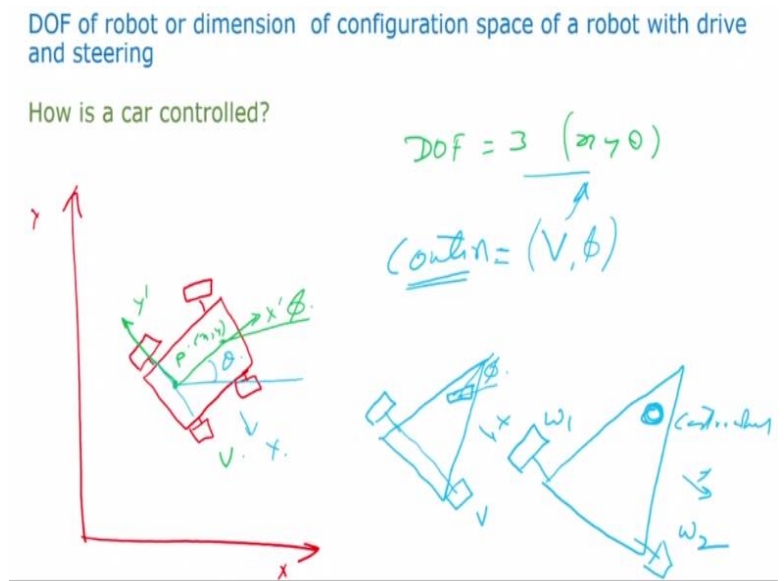 DOF of robot or dimension of configuration space of a robot with drive
and steering
How is a car controlled?
DOF = 3 (x y θ)
= (V, ϕ)
Y
y' x' ϕ.
P (x, y) θ.
V. x.
X
ϕ. x V
ω1 ω2